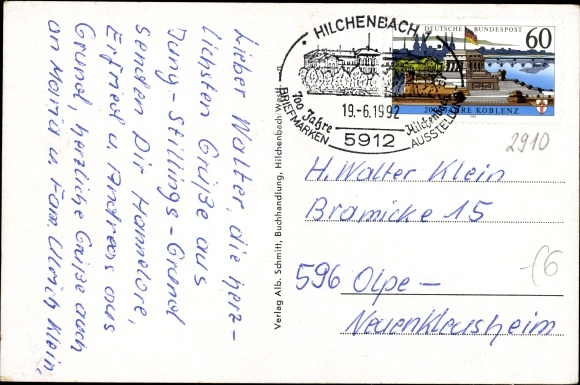 Lieber Walter, die herz-
lichsten Grüße aus
Jung-Stillings-Grund
senden Dir Hannelore,
Erfried u. Andreas aus
Grund, herzliche Grüße auch
an Maria u. Fam. Ulrich Klein.
Verlag Alb. Schmitt, Buchhandlung, Hilchenbach Westf.
HILCHENBACH 1
700 Jahre Hilchenbach
19.-6.1992
BRIEFMARKEN AUSSTELLUNG
5912
DEUTSCHE BUNDESPOST
60
2000 JAHRE KOBLENZ
2910
H. Walter Klein
Bramicke 15
596 Olpe –
Neuenkleusheim